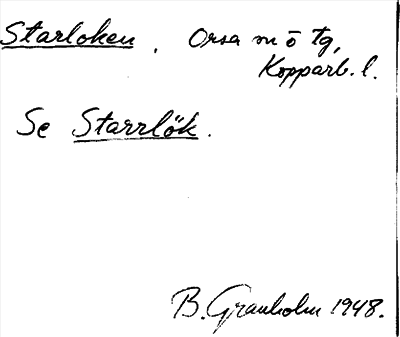 Starloken. Orsa m ö tg,
Kopparb. l.
Se Starrlök.
B. Granholm 1948.